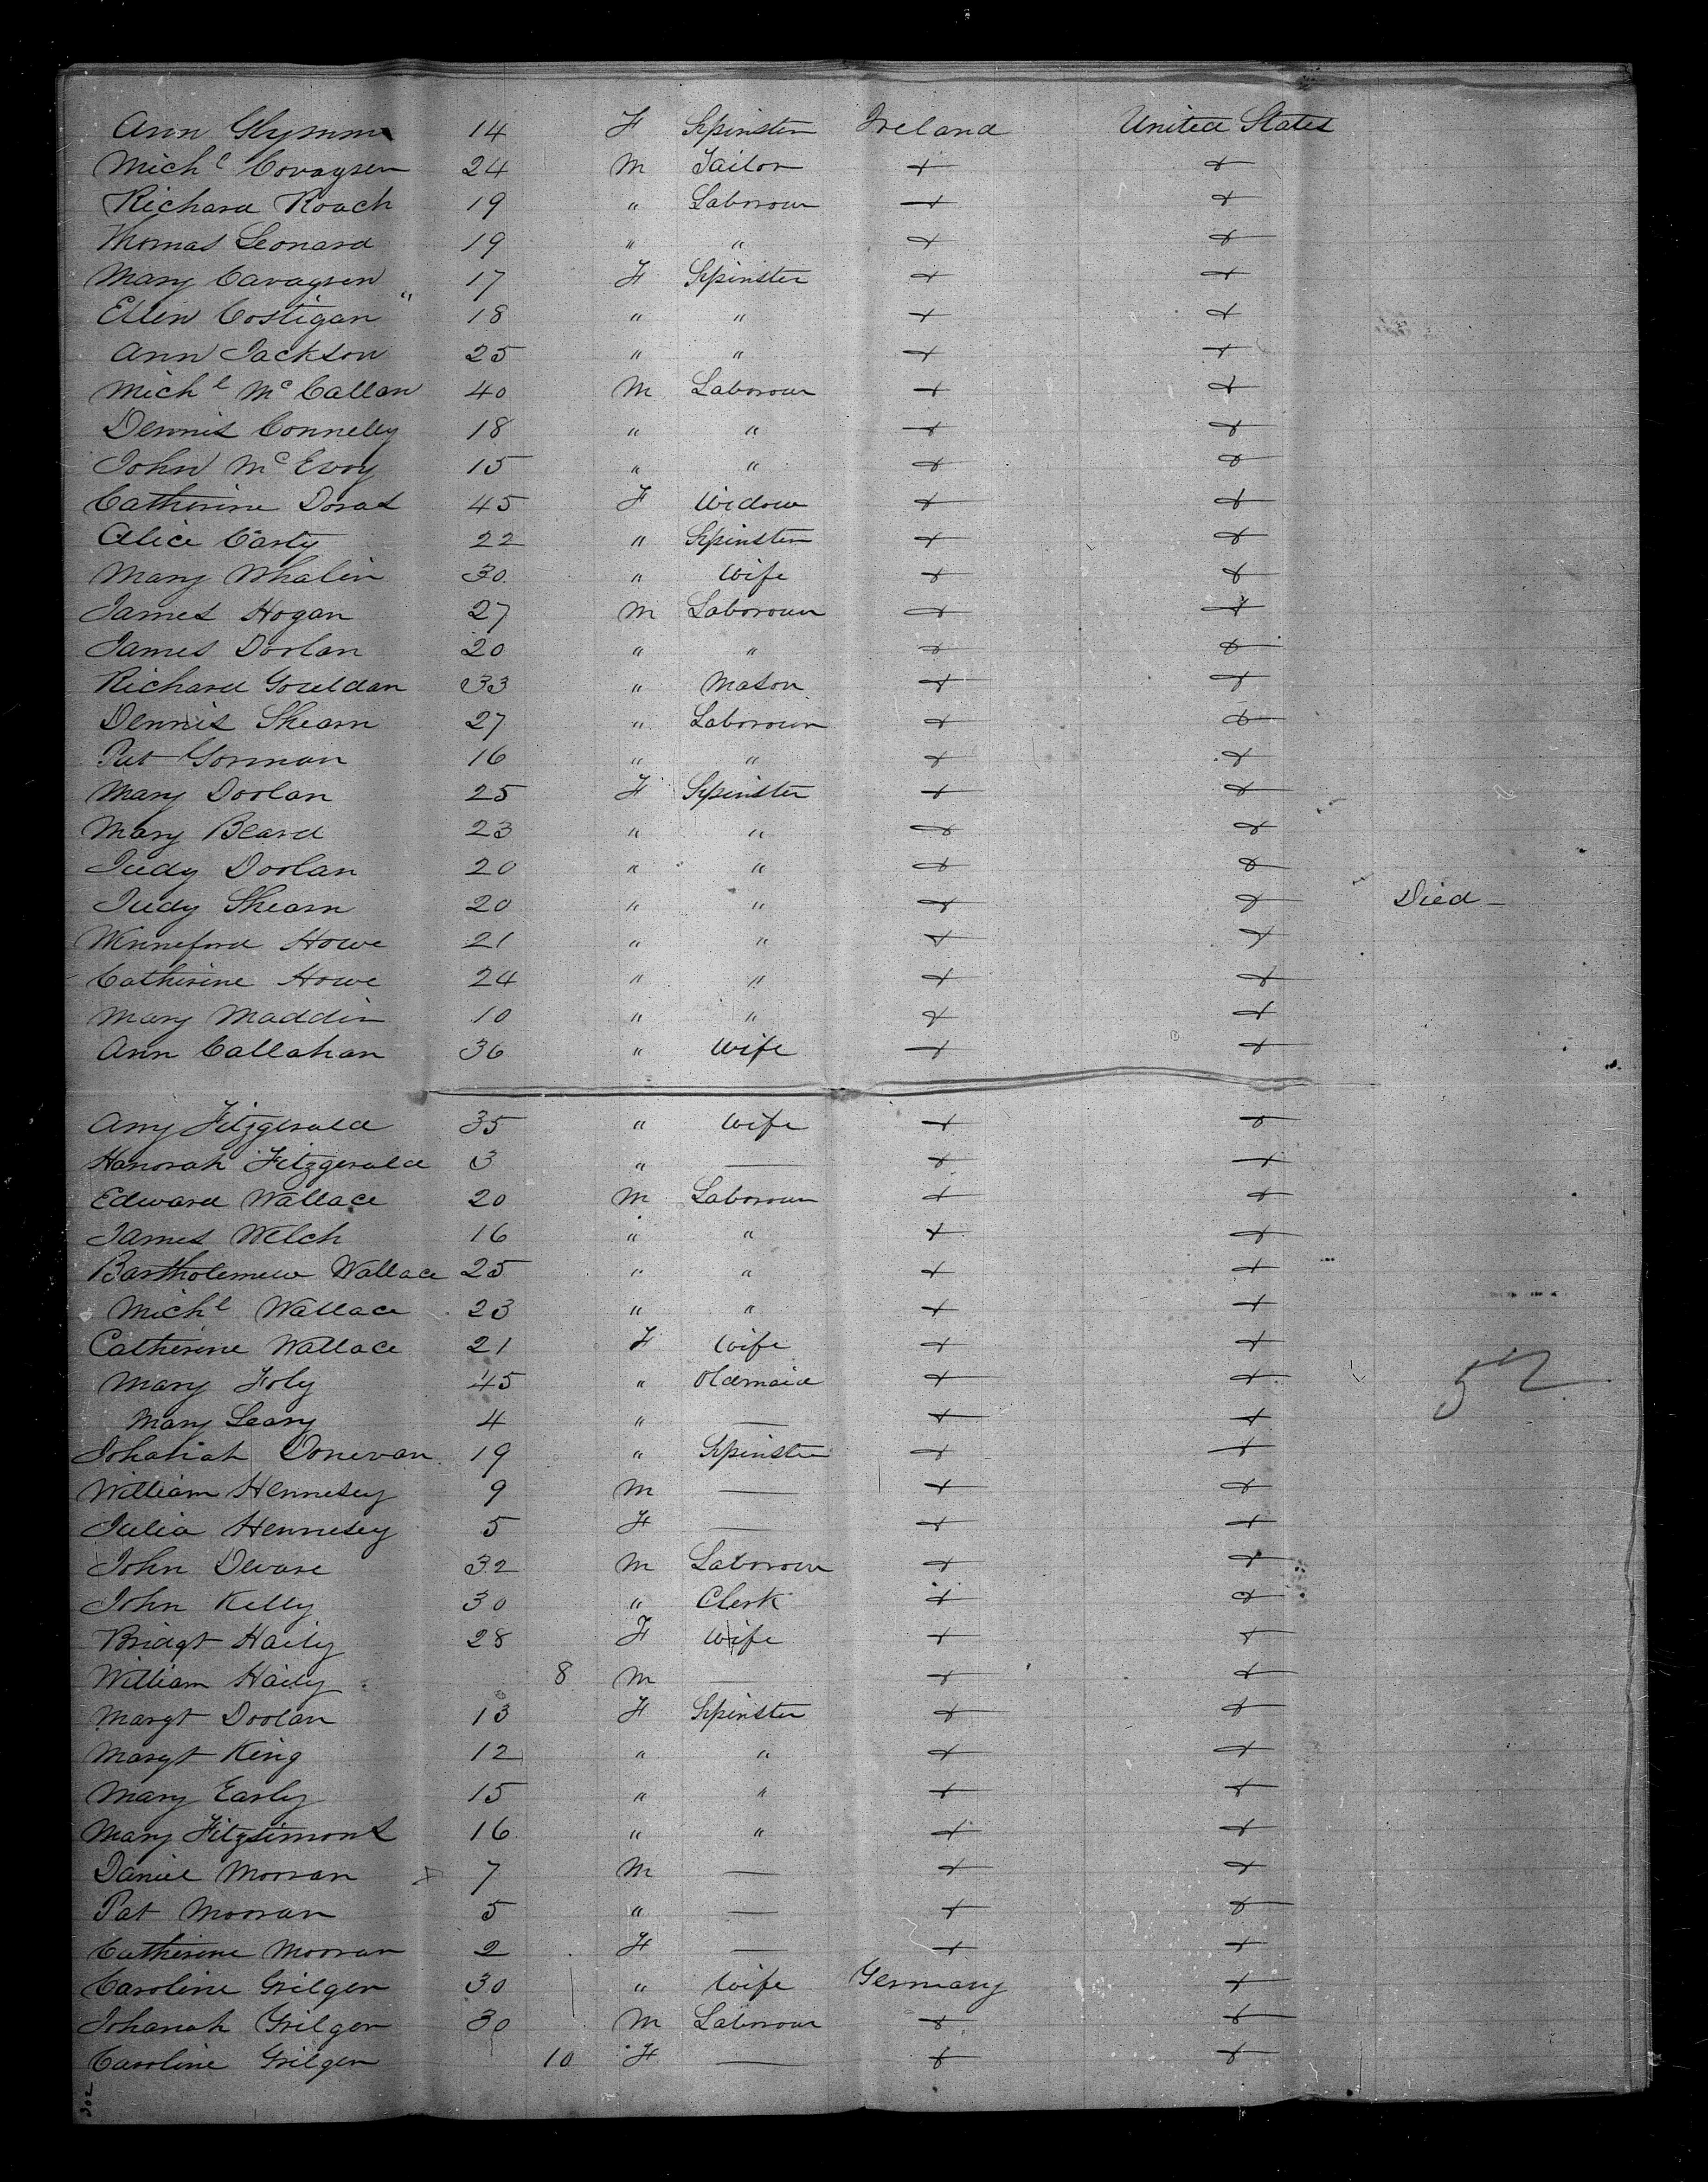 Ann Glymm 14 F Spinster Ireland United States
Mich l Covaysen 24 M Tailor + +
Richard Roach 19 " Laborour + +
Thomas Leonard 19 " " + +
Mary Cavaysen 17 F Spinster + +
Ellin Costigan " 18 " " + +
Ann Jackson 25 " " + +
Mich l Mc Callan 40 M Laborour + +
Dennis Connelly 18 " " + +
John Mc Evoy 15 " " + +
Catherine Doras 45 F Widow + +
Alice Carty 22 " Spinster + +
Mary Whalin 30 " Wife + +
James Hogan 27 M Laborour + +
James Doolan 20 " " + +
Richard Gouldan 33 " Mason + +
Dennis Shearn 27 " Laborour + +
Pat Gorman 16 " " + +
Mary Doolan 25 F Spinster + +
Mary Beard 23 " " + +
Judy Doolan 20 " " + +
Judy Shearn 20 " " + + Died -
Winneford Howe 21 " " + +
Catherine Howe 24 " " + +
Mary Maddin 10 " " + +
Ann Callahan 36 " Wife + +
Amy Fitzgerald 35 " Wife + +
Hanorah Fitzgerald 3 " — + +
Edward Wallace 20 M Laborour + +
James Welch 16 " " + +
Bartholemew Wallace 25 " " + +
Mich l Wallace 23 " " + +
Catherine Wallace 21 F Wife + +
Mary Foly 45 " Oldmaid + + 52
Mary Leary 4 " — + +
Johanah Donevan 19 " Spinster + +
William Hennesey 9 M — + +
Julia Hennesey 5 F — + +
John Devare 32 M Laborour + +
John Kelly 30 " Clerk + +
Bridgt Haily 28 F Wife + +
William Haily 8 M — + +
Margt Doolan 13 F Spinster + +
Margt King 12 " " + +
Mary Early 15 " " + +
Mary Fitzsimons 16 " " + +
Daniel Mooran 7 M — + +
Pat Mooran 5 " — + +
Catherine Mooran 2 F — + +
Caroline Grilger 30 " Wife Germany +
Johanah Grilger 30 M Laborour + +
Caroline Grilger 10 F — + +
302